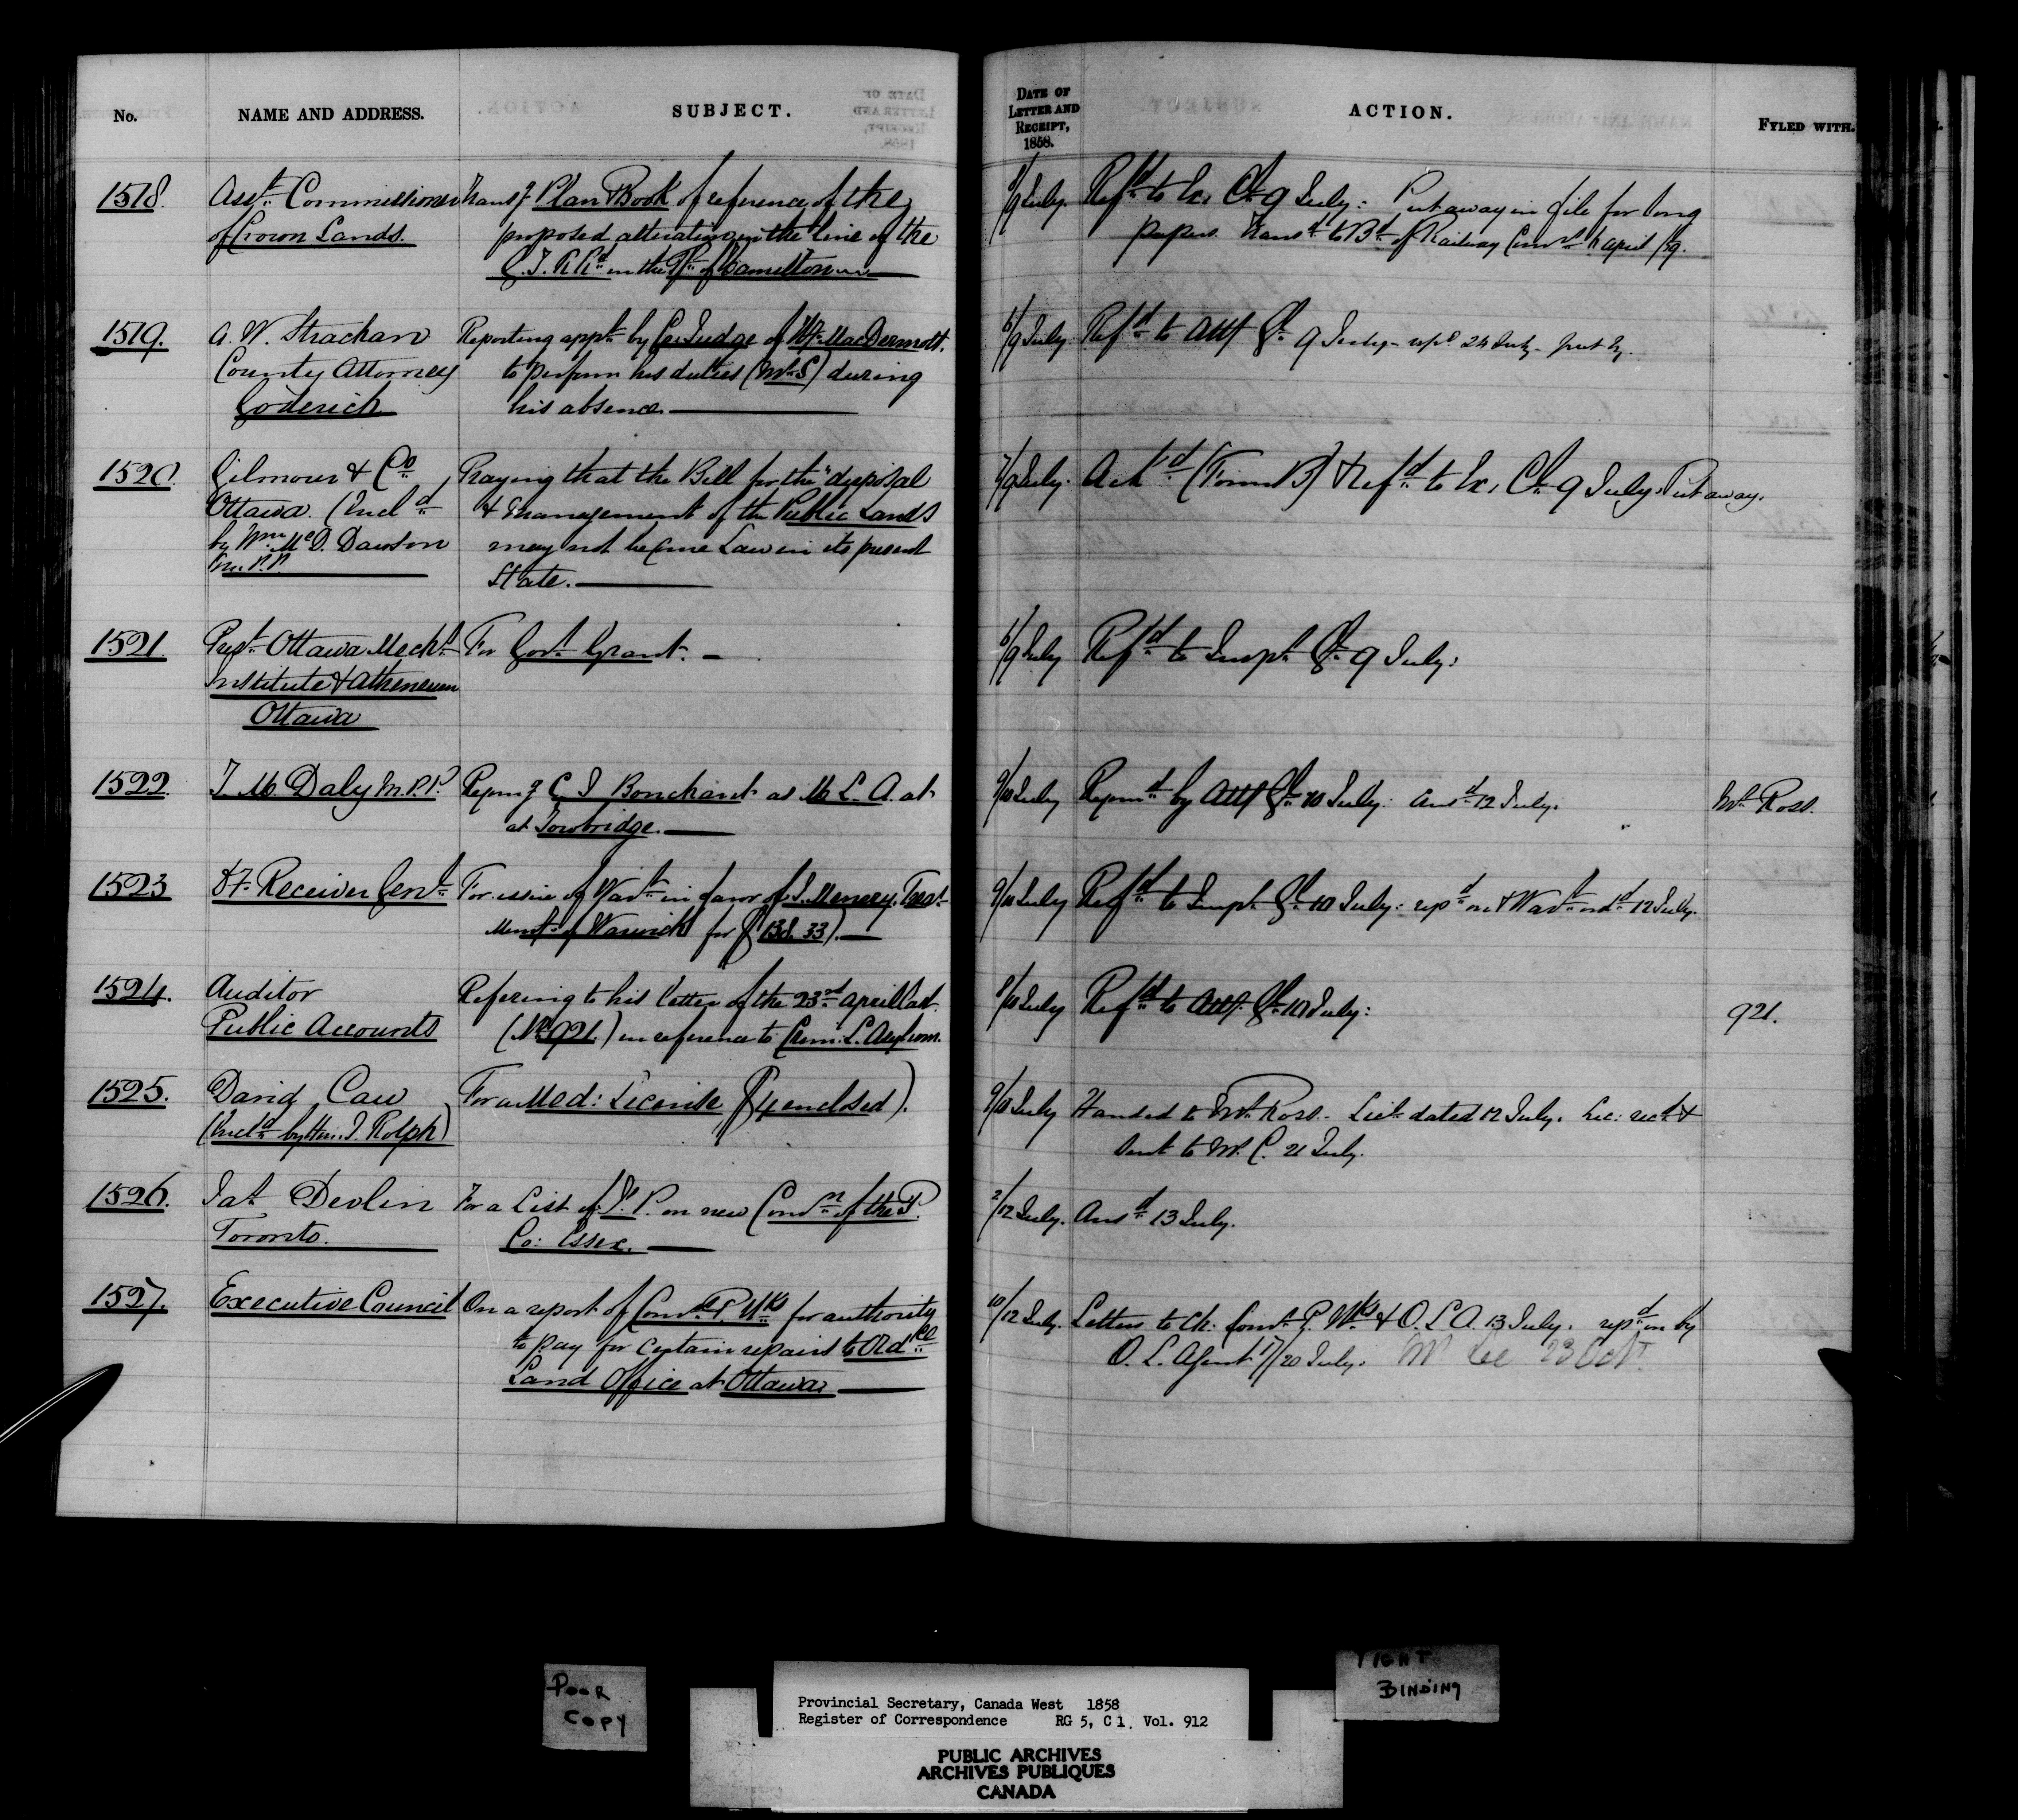 No.
NAME AND ADDRESS.
SUBJECT.
DATE OF
LETTER AND
RECEIPT,
1858.
ACTION.
FYLED WITH.
1518.
Asst. Commissioner
of Crown Lands.
Transg Plan & Book of reference of the
proposed alteration in the line of the
G. T. R Rd in the Tp of Hamilton
8/9 July.
Refd to Ex. Cl. 9 July: Put away in file for long
papers. Transd to Bd of Railway Comrs April /59.
1519.
A. W. Strachan
County Attorney
Goderich
Reporting appt. by Co: Judge of Hy. MacDermott.
to perform his duties (Mr S) during
his absence.
6/9 July.
Refd to Atty Gl. 9 July - repd 24 July - put by.
1520.
Gilmour & Co.,
Ottawa (Incld
by Wm McD. Dawson
M.P.P.
Praying that the Bill for the "disposal
& management of the Public Lands
may not become Law in its present
State.
7/9 July.
Ackd (Form B) & Refd to Ex. Cl. 9 July. Put away.
1521.
Prest Ottawa Mechs
Institute & Atheneum
Ottawa
For Govt. Grant.
6/9 July
Refd to Inspr. Gl. 9 July:
1522.
T. M. Daly M.P.P.
Recomg C J Bouchart as M. L. A. at
at Towbridge.
9/10 July
Recomd by Atty Gl. 10 July: Ansd 12 July.
Mr Ross.
1523
Hy. Receiver Genl.
For issue of Wart in favor of Treasr.
Munty of Warwick for ($138.33).
9/10 July
Refd to Inspr. Gl. 10 July: repd on & Wart. ordd 12 July.
1524.
Auditor
Public Accounts
Refering to his letter of the 23rd April last.
(No 921.) in reference to Crim: L. Asylum.
8/10 July
Refd to Atty. Gl. 10 July:
921.
1525.
David Caw
(Incld by Hon. J. Rolph)
For a Med: License ($4 enclosed).
9/10 July
Handed to Mr. Ross. Lic. dated 12 July. Lic: recd &
sent to Mr. C. 21 July.
1526.
Jas. Devlin
Toronto.
For a List of J. P. on new Comn of the P.
Co: Essex.
2/12 July.
Ansd 13 July.
1527.
Executive Council
On a report of Comr P. Wks for authority
to pay for certain repairs to Ordce
Land Office at Ottawa
10/12 July.
Letters to Ch: Comr. P. Wks & O. L A. 13 July. repd on by
O. L. Agent 17/20 July. 23 Oct
POOR
COPY
Provincial Secretary, Canada West 1858
Register of Correspondence RG 5, C 1. Vol. 912
PUBLIC ARCHIVES
ARCHIVES PUBLIQUES
CANADA
TIGHT
BINDING